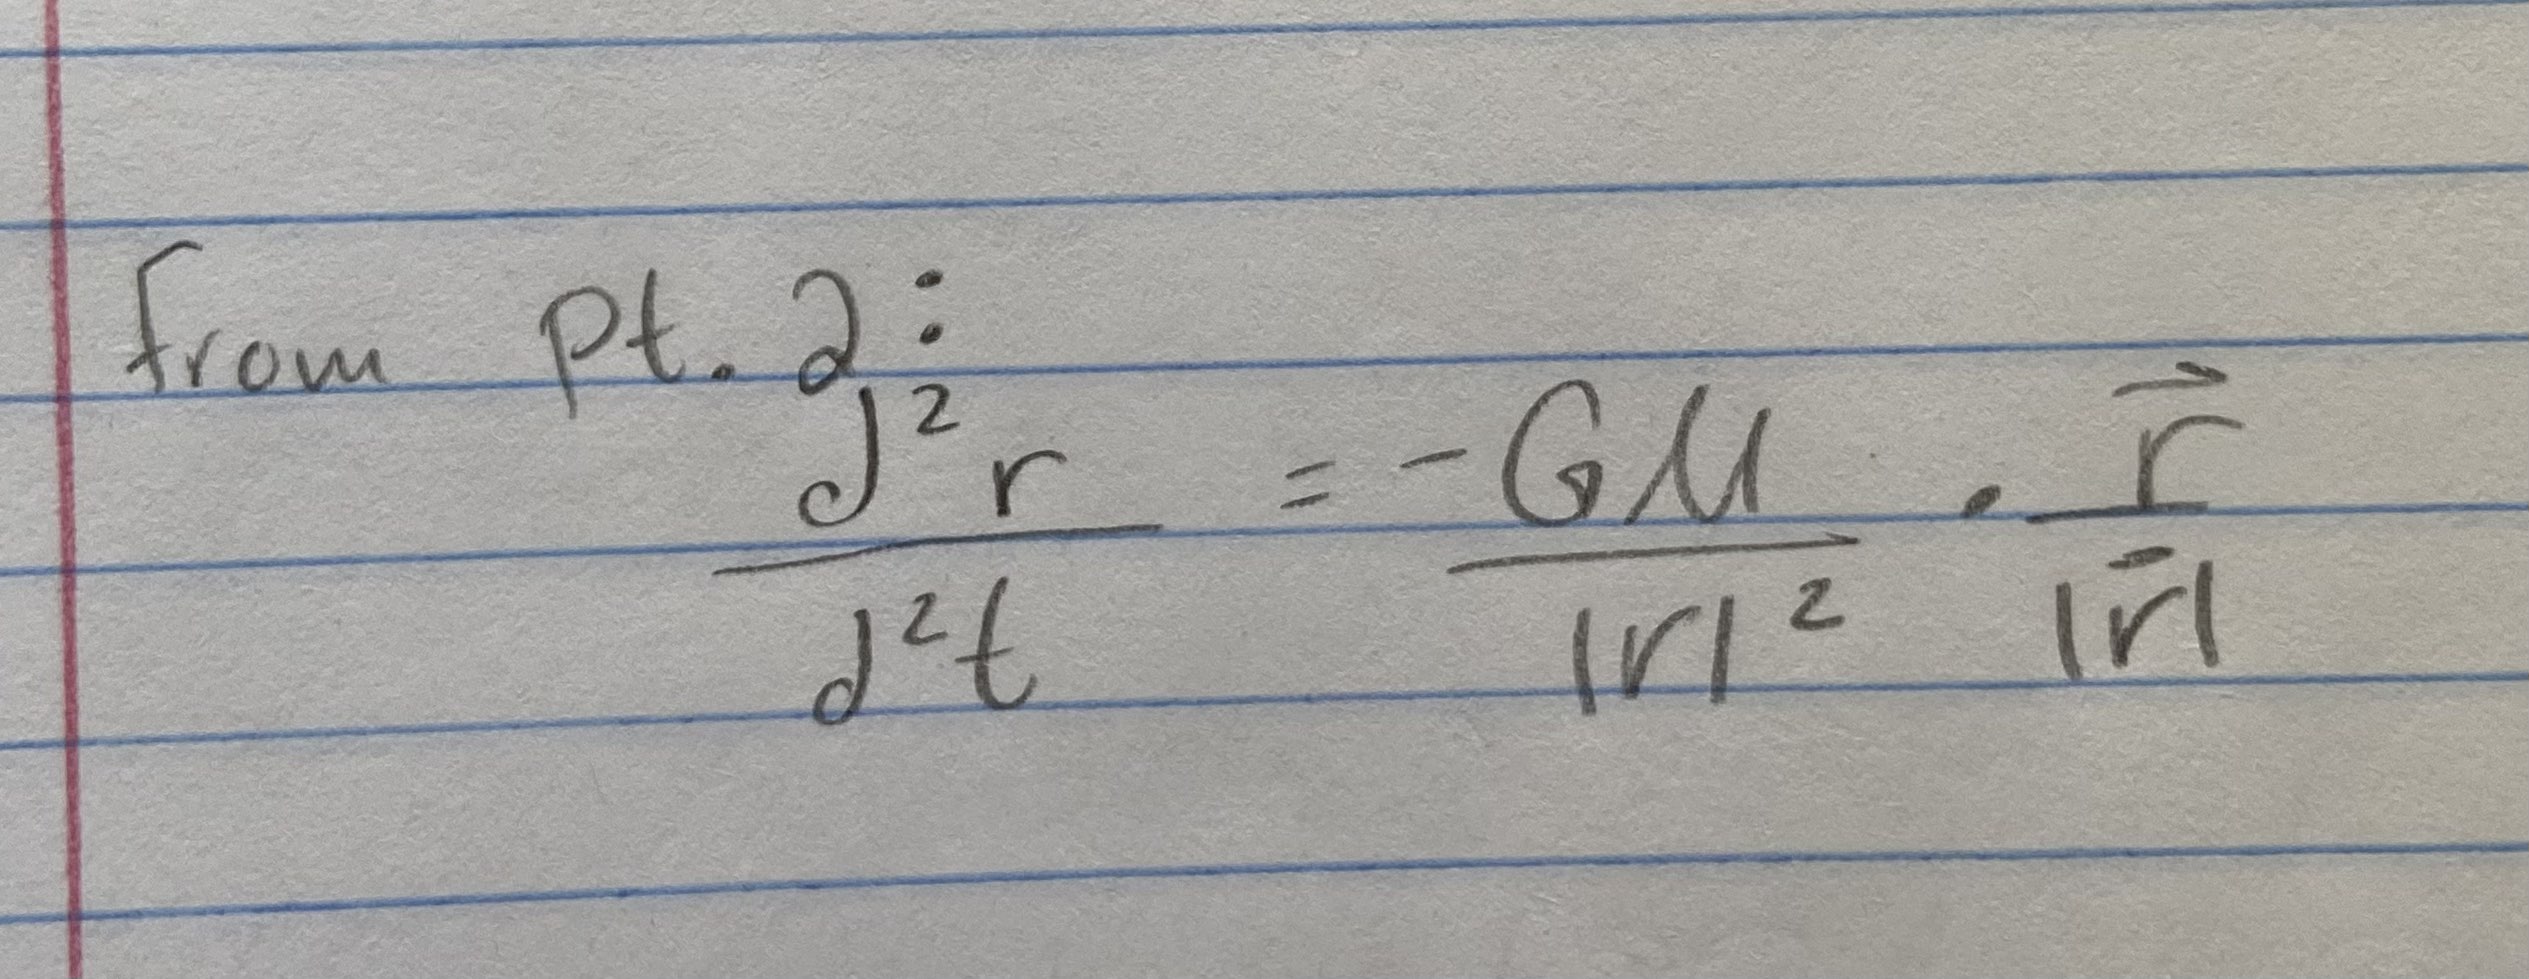 from pt. 2:
d²r/d²t = -GM/|r|² · r⃗/|r⃗|